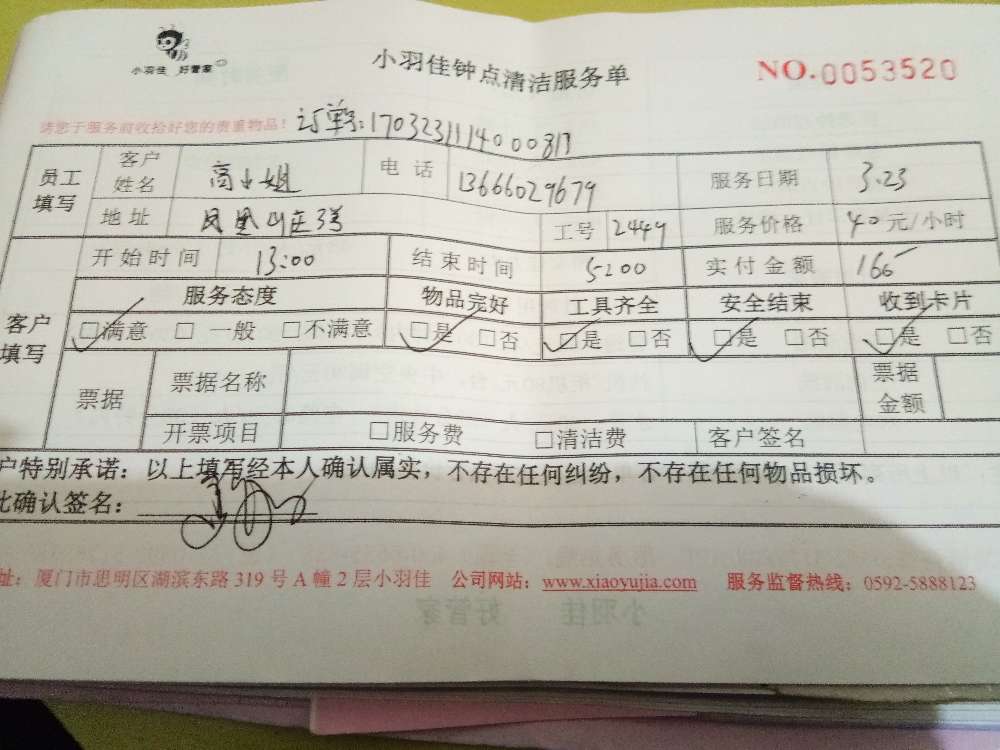 小羽佳 好管家
小羽佳钟点清洁服务单
NO.0053520
请您于服务前收拾好您的贵重物品!
员工填写 客户姓名 高小姐 电话 13666029679 服务日期 3.23
地址 凤凰山庄 工号 2449 服务价格 40元/小时
客户填写 开始时间 13:00 结束时间 5200 实付金额
服务态度 物品完好 工具齐全 安全结束 收到卡片
☑满意 □一般 □不满意 ☑是 □否 ☑是 □否 ☑是 □否 ☑是 □否
票据 票据名称 票据金额
开票项目 □服务费 □清洁费 客户签名
户特别承诺:以上填写经本人确认属实,不存在任何纠纷,不存在任何物品损坏。
此确认签名:
址:厦门市思明区湖滨东路 319 号 A 幢 2 层小羽佳 公司网站:www.xiaoyujia.com 服务监督热线:0592-5888123